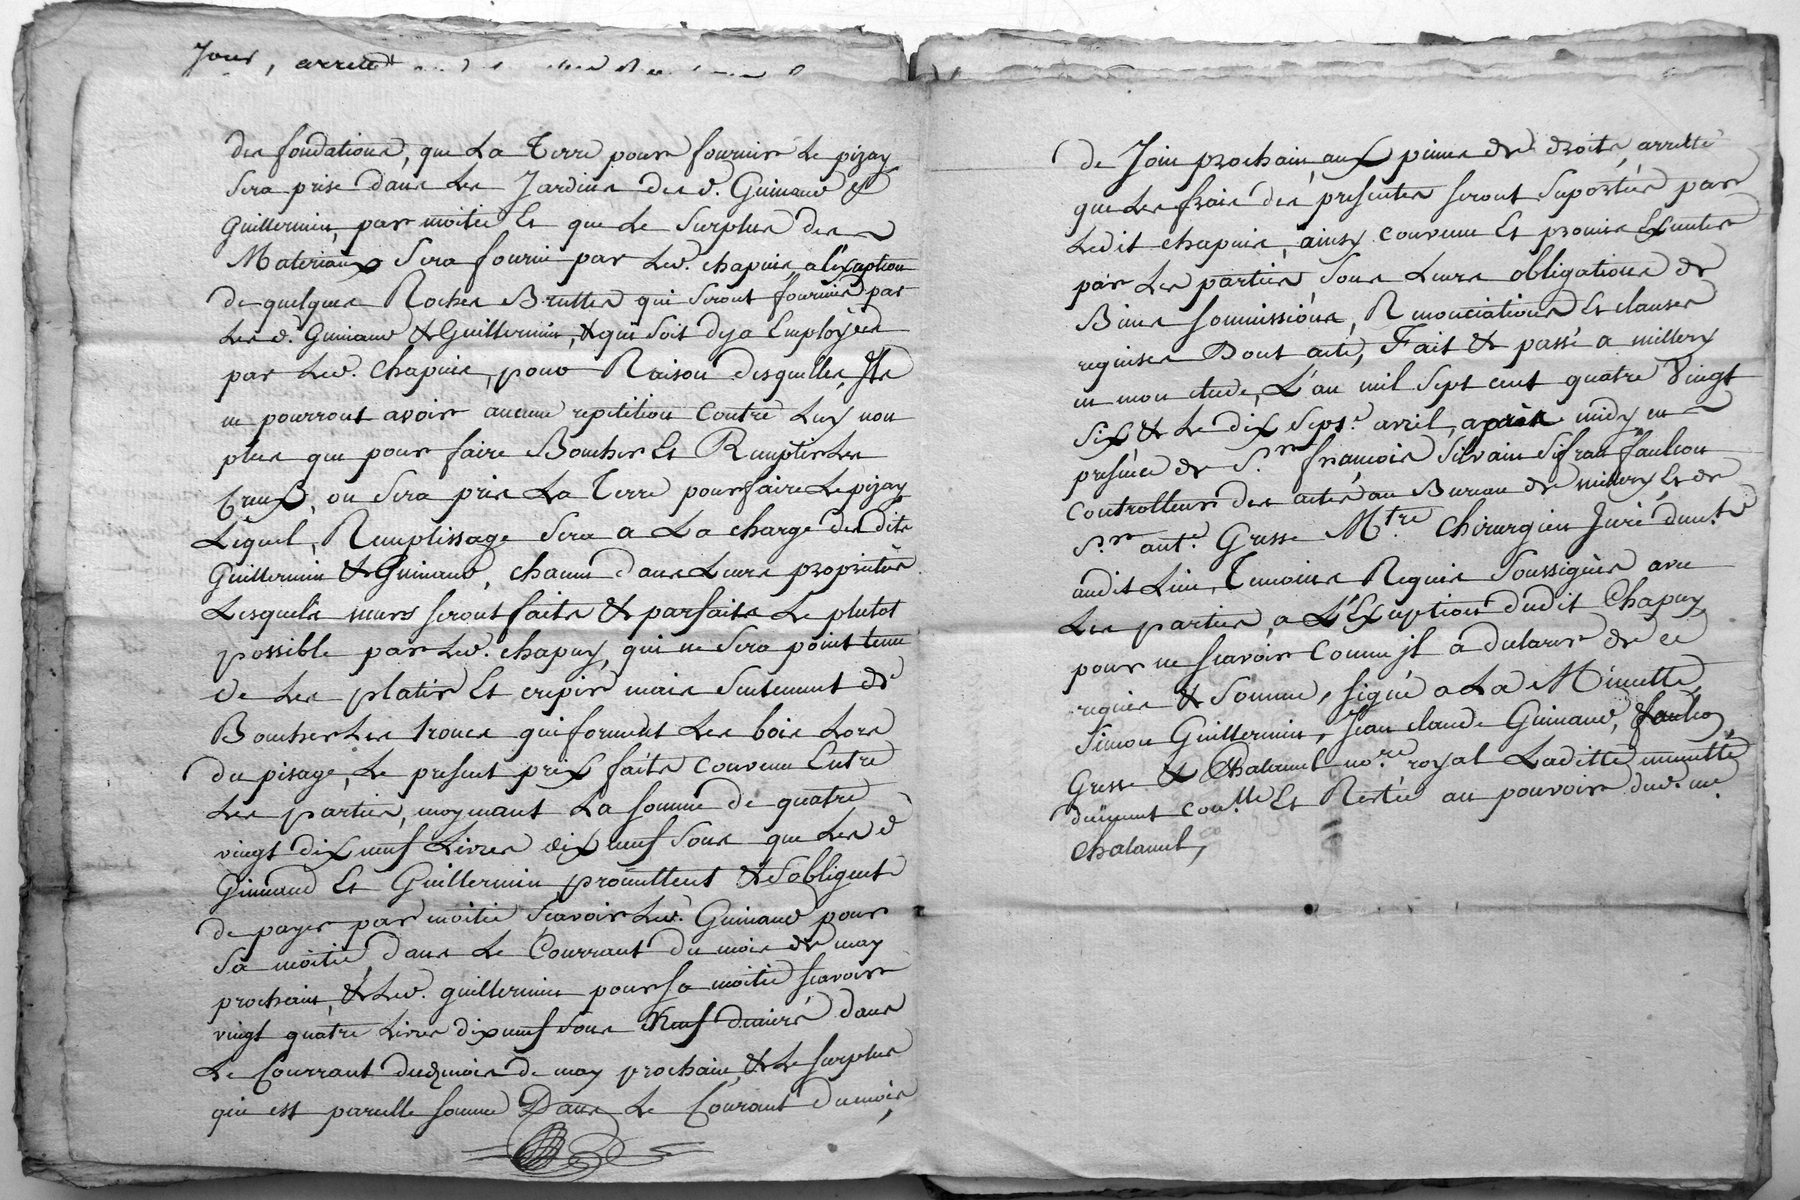 Jour, arreté
des fondations, que La Terre pour fournir Le pizay
Sera prise dans Les Jardins des d. Guinand &
Guillermin, par moitié Et que Le Surplus des
Materiaux Sera fourni par Led. chapuis, a l'exception
de quelques Roches Bruttes qui Seront fournies par
Les d. Guinand & Guillermin, & qui Soit deja Employées
par Led. Chapuis, pour Raison desquelles, Ils
ne pourront avoir aucune repetition Contre Luy non
plus que pour faire Boucher Et Remplir Les
Creux, ou Sera pris La Terre pour faire Le pizay
Lequel, Remplissage Sera a La charge des dits
Guillermin & Guinand, chacun dans Leurs proprietés
Lesquels murs seront faits & parfaits Le plutot
possible par Led. chapuy, qui ne Sera point tenu
de Les platir Et crepir mais Seulement de
Boucher Les trous qui forment Les bois Lors
du pisage, Le present prix fait convenu Entre
Les parties, moyenant La somme de quatre
vingt dix neuf Livres dix neuf Sous que Les d
Guinand Et Guillermin promettent & S'obligent
de payer par moitié, Scavoir Led. Guinand pour
Sa moitié, dans Le Courrant du mois de may
prochain, & Led. guillermin pour sa moitié scavoir
vingt quatre Livres dix neuf Sous Neuf deniers dans
Le Courrant dud. mois de may prochain, & Le surplus
qui est pareille somme Dans Le Courant du mois
de Join prochain, aux peines de droits, arretté
que Les frais des presentes seront Suportés par
Ledit chapuis, ainsy convenu Et promis Executer
par Les parties Sous Leurs obligations de
Biens soumissions, Renonciations Et clauses
requises Dont acte, Fait & passé a millery
en mon etude, L'an mil Sept cent quatre Vingt
Six & Le dix Sept. avril, après midy en
presence de S.r françois Silvain Sifran faulcon
Controlleur des actes au Bureau de millery Et de
S.r ant.e Grosse M.tre Chirurgien Juré deme.t
audit Lieu, Temoins Requis Soussignés avec
Les parties, a L'Exception dudit Chapuy,
pour ne scavoir Comme il a declaré de ce
requis & Sommé, signé a La Minutte,
Simon Guillermin, Jean claude Guinand, faulcon,
Grosse & Chalamel no.re royal Laditte minutte
duement con.lle Et Restée au pouvoir dud. me.
Chalamel,